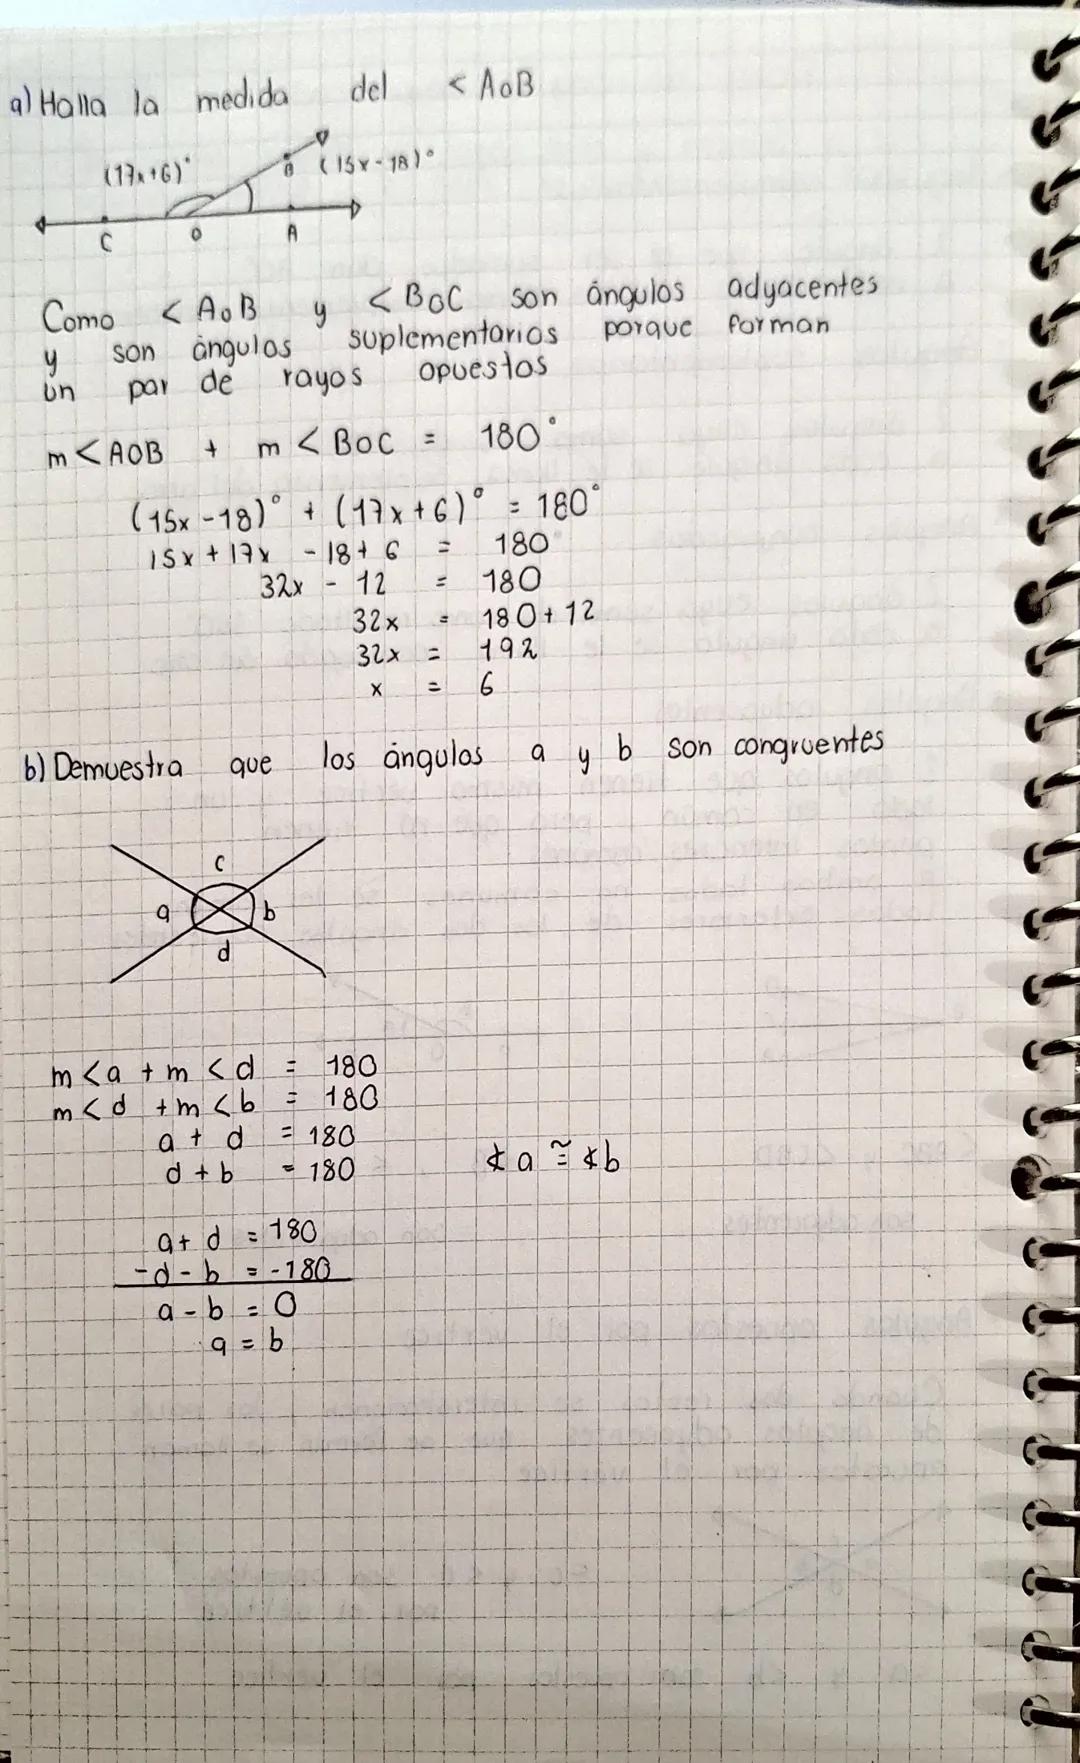 a) Halla la medida del < AOB
(17x+6)°
B (15x-18)°
C O A
Como < AOB y < BOC son ángulos adyacentes
y son ángulos suplementarios porque forman
un par de rayos opuestos
m<AOB + m<BOC = 180°
(15x-18)° + (17x+6)° = 180°
15x + 17x - 18 + 6 = 180
32x - 12 = 180
32x = 180 + 12
32x = 192
x = 6
b) Demuestra que los ángulos a y b son congruentes
c
a b
d
m<a + m<d = 180
m<d + m<b = 180
a + d = 180
d + b = 180 ∡a ≅ ∡b
a + d = 180
-d - b = -180
a - b = 0
a = b